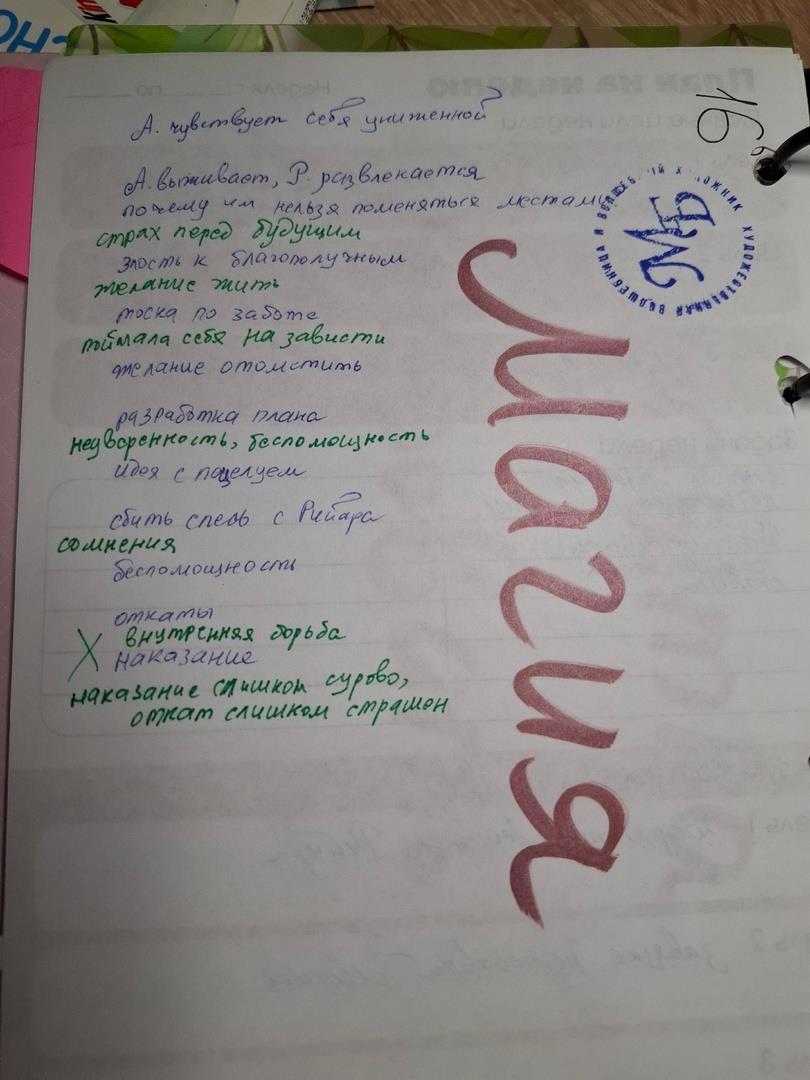 А. чувствует себя униженной
А. выживает, Р. развлекается
почему им нельзя поменяться местами
страх перед будущим
злость к благополучным
желание жить
тоска по заботе
поймала себя на зависти
желание отомстить
разработка плана
неуверенность, беспомощность
идея с поцелуем
сбить спесь с Рийара
сомнения
беспомощность
откаты
внутренняя борьба
X наказание
наказание слишком сурово,
откат слишком страшен
Магия
16
МБ
ХУДОЖЕСТВЕННАЯ ВОЛШЕБНИЦА И
План на неделю
Неделя с по